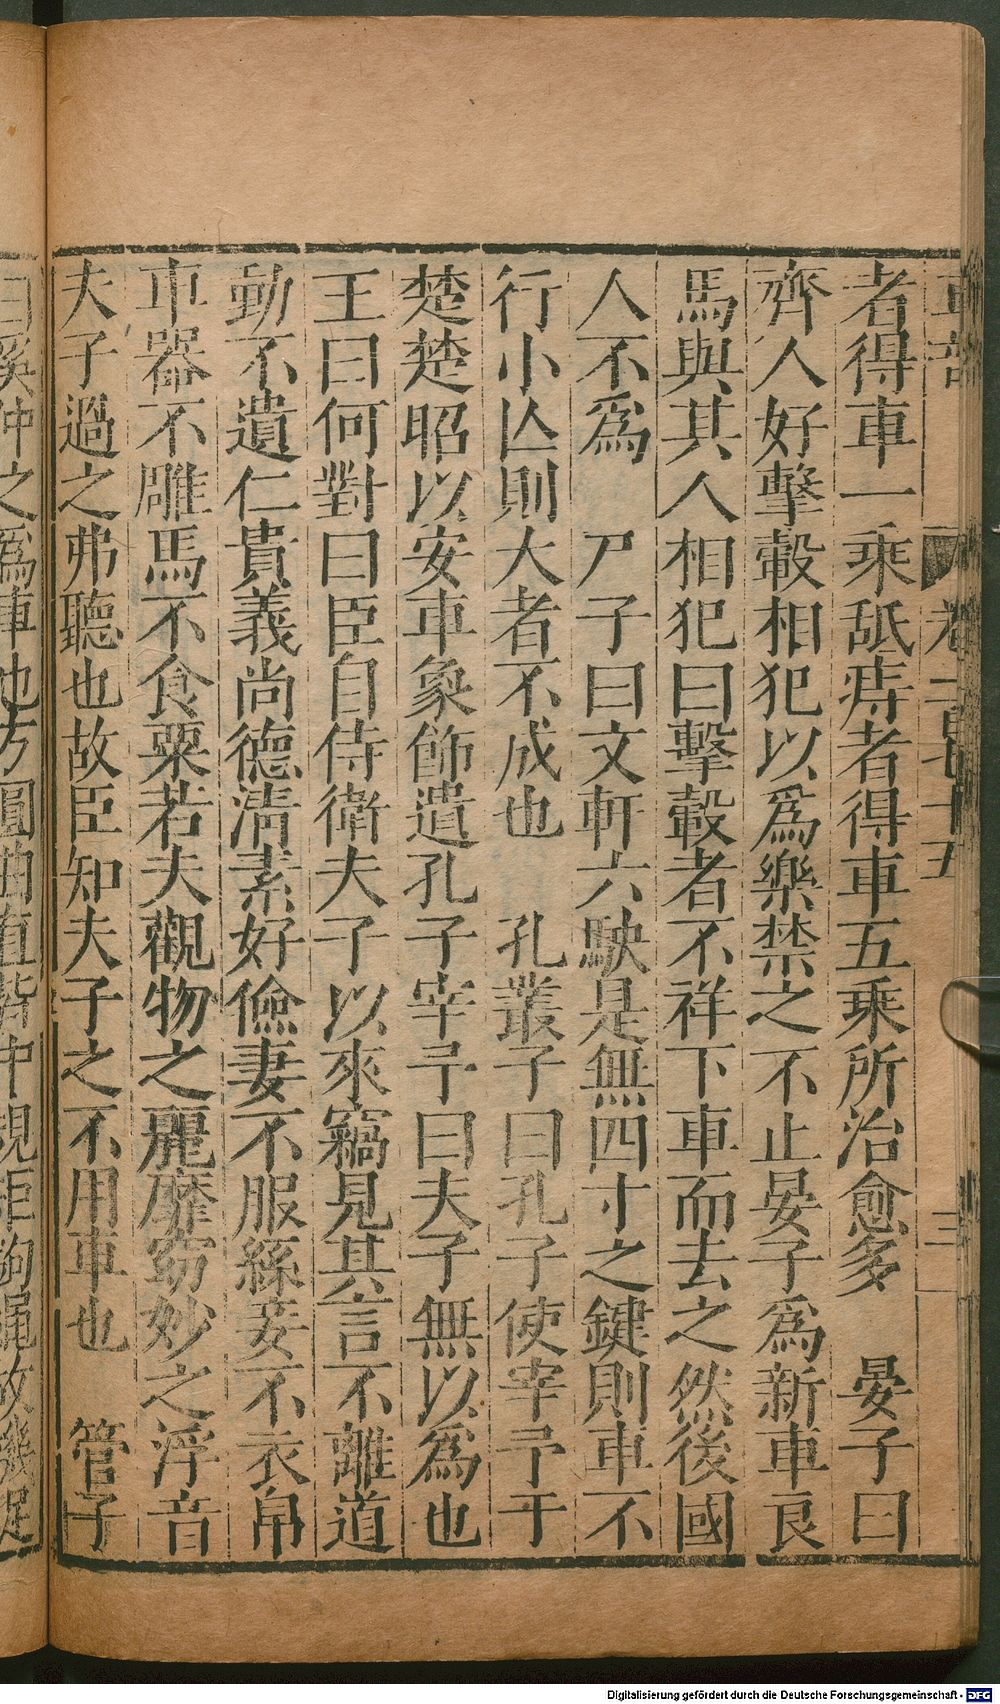 車部
三
者得車一乘舐痔者得車五乘所治愈多　晏子曰
齊人好擊轂相犯以爲樂禁之不止晏子爲新車良
馬與其人相犯曰擊轂者不祥下車而去之然後國
人不爲　尸子曰文軒六駃是無四寸之鍵則車不
行小亾則大者不成也　孔叢子曰孔子使宰予于
楚楚昭以安車象飾遺孔子宰予曰夫子無以爲也
王曰何對曰臣自侍衛夫子以來竊見其言不離道
動不遺仁貴義尚德清素好儉妻不服絲妾不衣帛
車器不雕馬不食粟若夫觀物之麗靡窈妙之浮音
夫子過之弗聽也故臣知夫子之不用車也　管子
曰奚仲之爲車也方圓曲直皆中規矩鉤繩故機旋
Digitalisierung gefördert durch die Deutsche Forschungsgemeinschaft - DFG